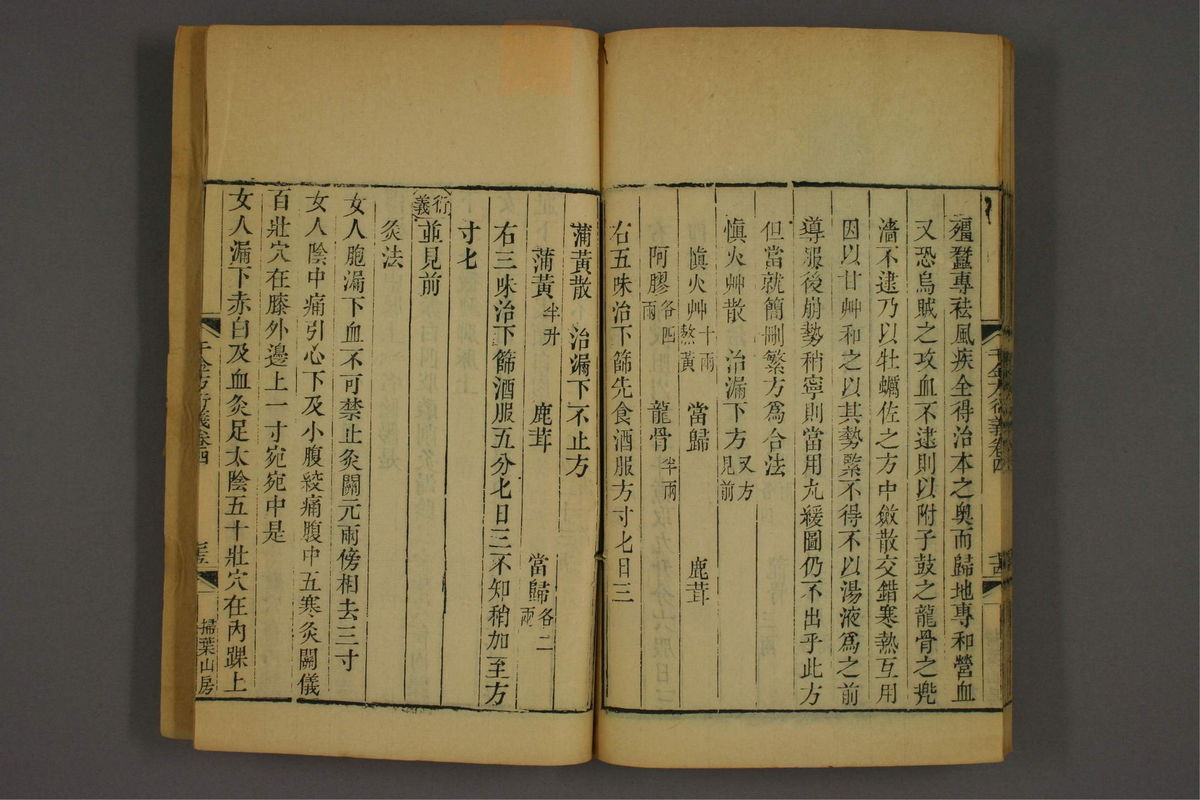 殭蠶專祛風疾全得治本之奧而歸地專和營血
又恐烏賊之攻血不逮則以附子鼓之龍骨之兠
濇不逮乃以牡蠣佐之方中斂散交錯寒熱互用
因以甘艸和之以其勢緊不得不以湯液爲之前
導服後崩勢稍寧則當用尣緩圖仍不出乎此方
但當就簡刪繁方爲合法
慎火艸散 治漏下方又方見前
慎火艸十兩熬黃 當歸 鹿茸
阿膠各四兩 龍骨半兩
右五味治下篩先食酒服方寸匕日三
蒲黃散 治漏下不止方
蒲黃半升 鹿茸 當歸各二兩
右三味治下篩酒服五分匕日三不知稍加至方
寸匕
衍義並見前
灸法
女人胞漏下血不可禁止灸關元兩傍相去三寸
女人陰中痛引心下及小腹絞痛腹中五寒灸關儀
百壯穴在膝外邊上一寸宛宛中是
女人漏下赤白及血灸足太陰五十壯穴在內踝上
千金方衍義卷四
掃葉山房